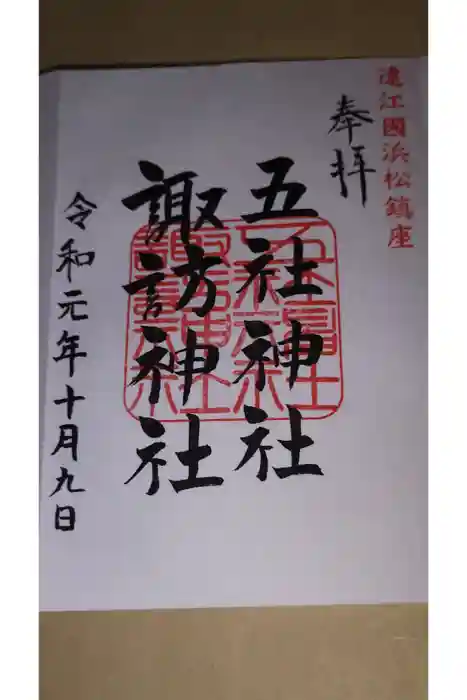 遠江國浜松鎮座
奉拝
五社神社
諏訪神社
令和元年十月九日